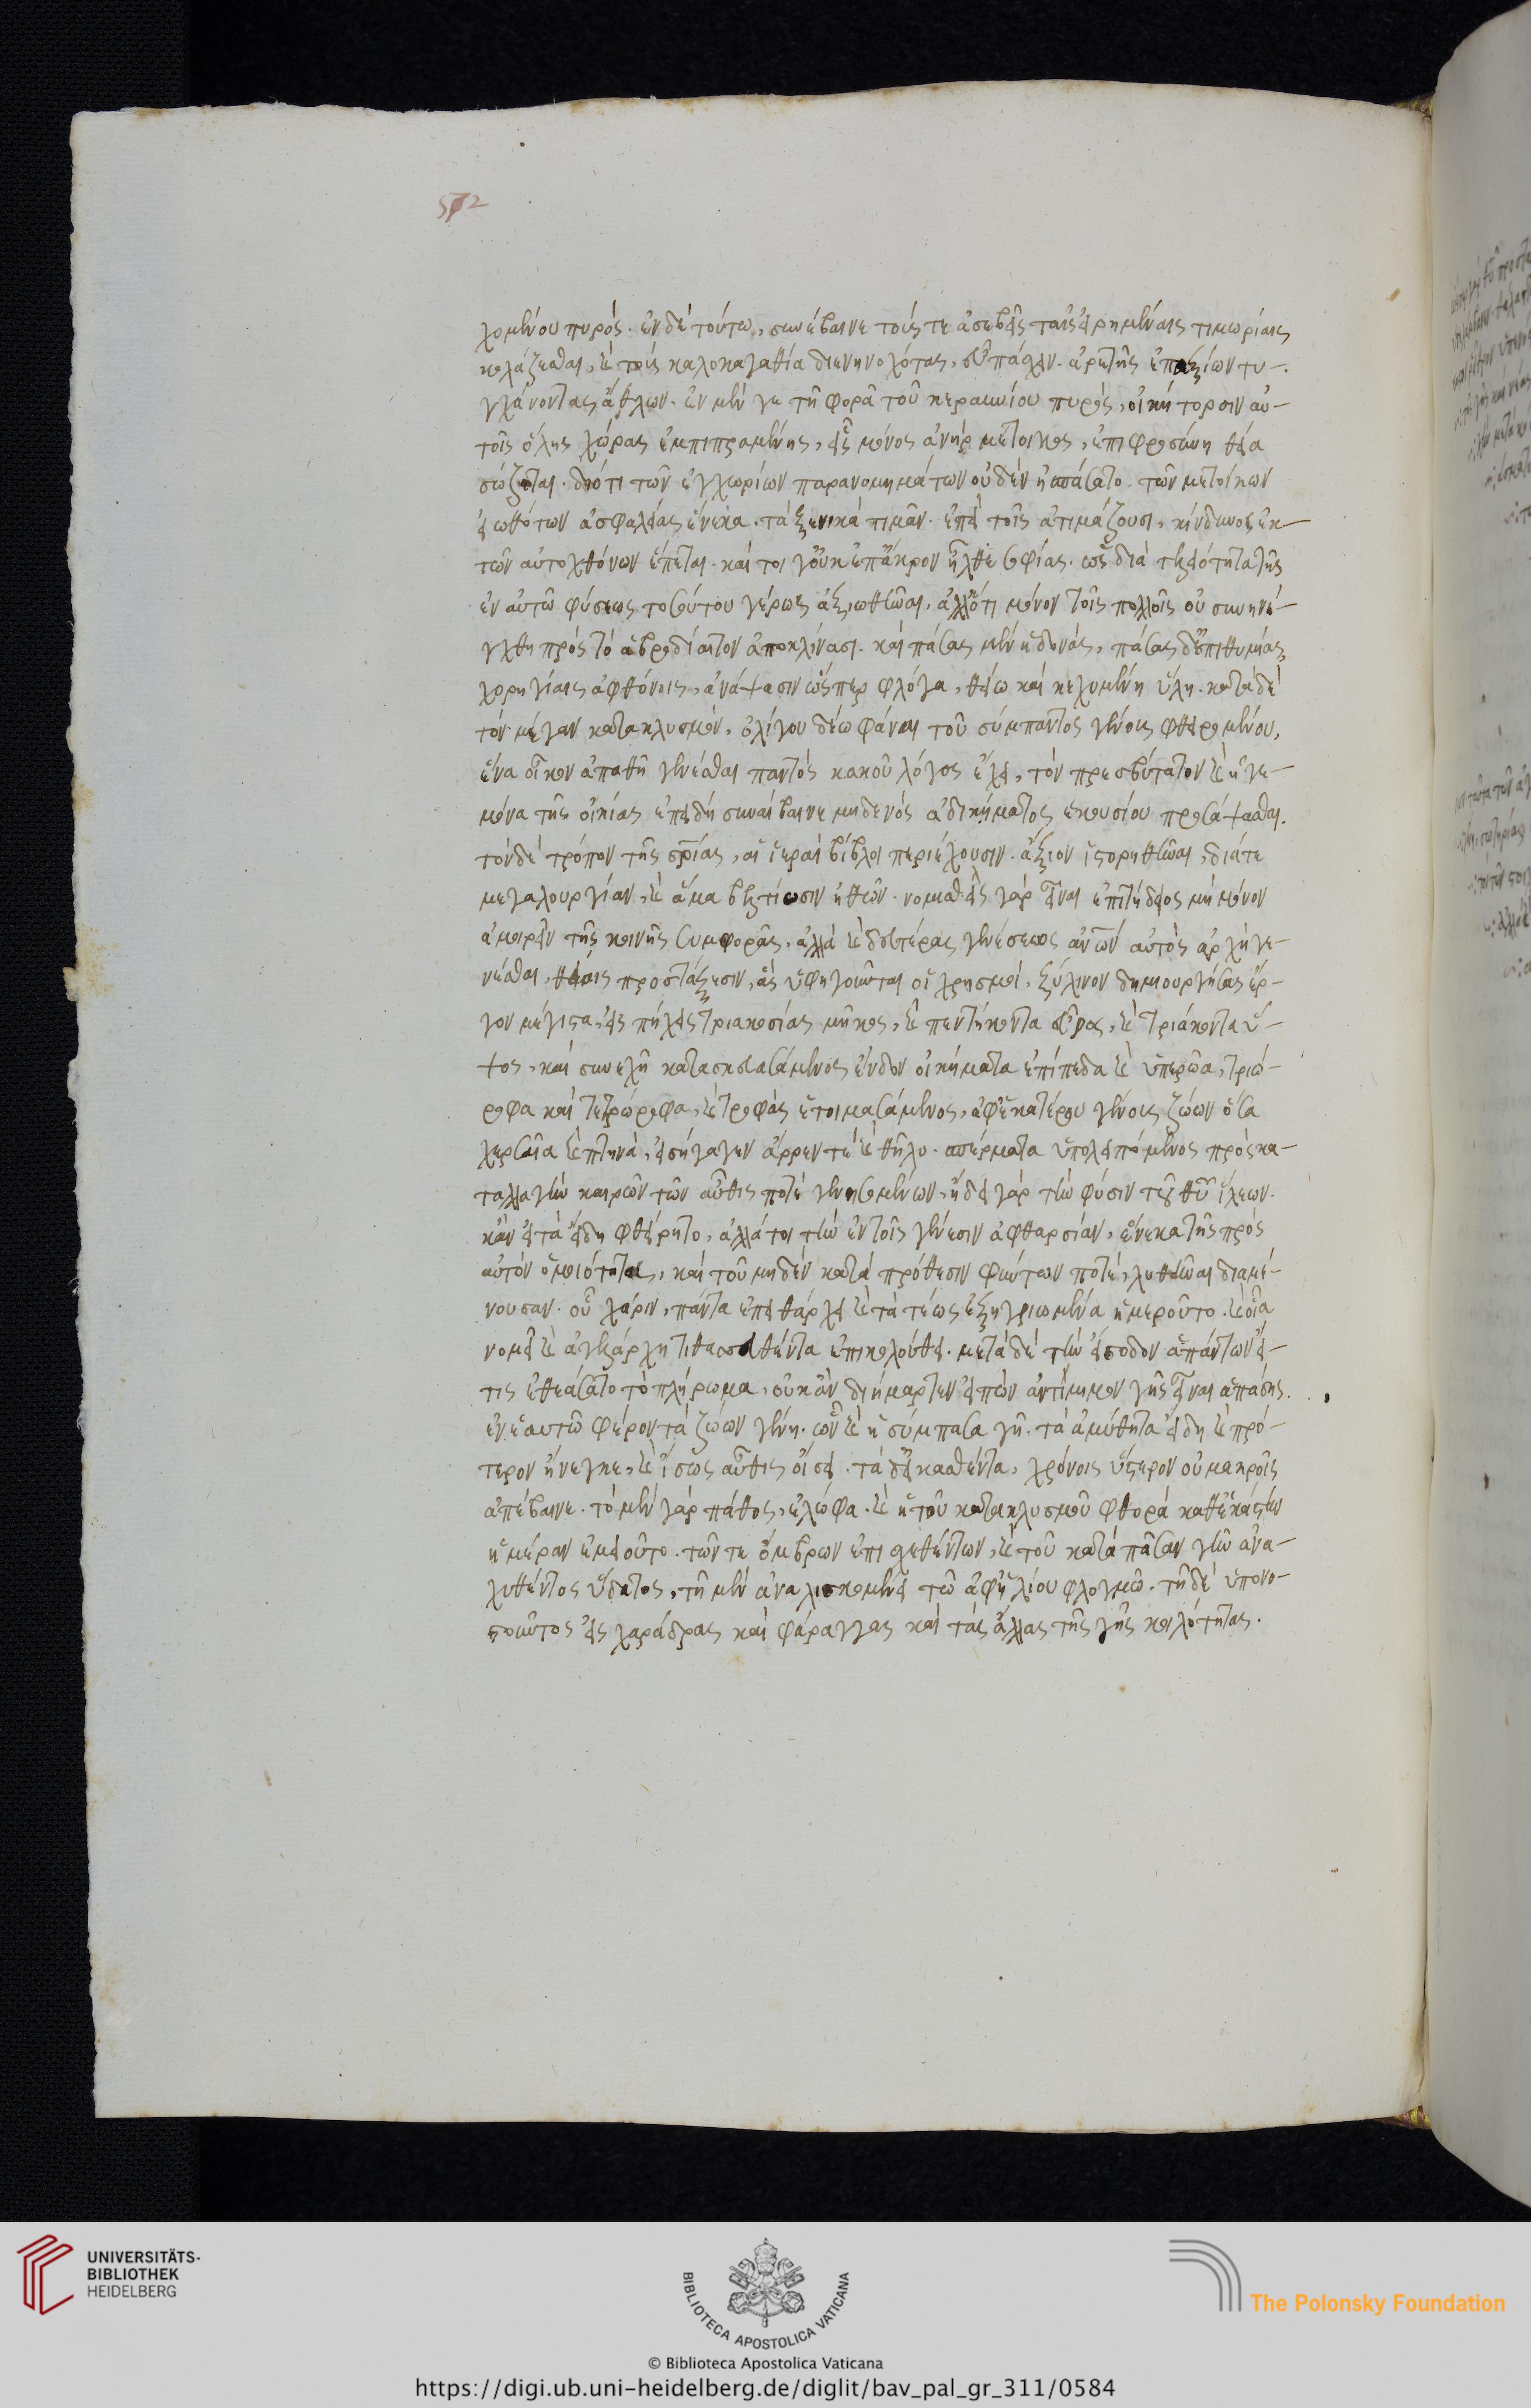 572
χομένου πυρός. ἐν δὲ τούτω, συνέβαινε τούς τε ἀσεβεῖς ταῖς εἰρημέναις τιμωρίαις
κολάζεσθαι, καὶ τοὺς καλοκαγαθία διενηνοχότας, εὖ πάσχειν. ἀρετῆς ἐπαξίων τυ-
γχάνοντας ἄθλων. ἐν μέν γε τῆ φορᾶ τοῦ κεραυνίου πυρός, οἰκήτορσιν αὐ-
τοῖς ὅλης χώρας ἐμπιπραμένης, εἷς μόνος ἀνὴρ μέτοικος, ἐπιφροσύνη θεία
σώζεται. διότι τῶν ἐγχωρίων παρανομημάτων οὐδὲν ἠσπάσατο. τῶν μετοίκων
εἰωθότων ἀσφαλείας ἕνεκα. τὰ ξενικὰ τιμᾶν. ἐπεὶ τοῖς ἀτιμάζουσι, κίνδυνος ἐκ
τῶν αὐτοχθόνων ἕπεται. καίτοι γ' οὐκ ἐπ' ἄκρον ἦλθε σοφίας. ὡς διὰ τελειότητα τῆς
ἐν αὐτῶ φύσεως τοσούτου γέρως ἀξιωθῆναι, ἀλλ' ὅτι μόνον τοῖς πολλοῖς οὐ συνηνέ-
χθη πρὸς τὸ ἁβροδίαιτον ἀποκλίνασι. καὶ πάσας μὲν ἡδονὰς, πάσας δ' ἐπιθυμίας,
χορηγίαις ἀφθόνοις, ἀνάψασιν ὥσπερ φλόγα, θείω καὶ κεχυμένη ὕλη. κατὰ δὲ
τὸν μέγαν κατακλυσμὸν, ὀλίγου δέω φάναι τοῦ σύμπαντος γένους φθειρομένου,
ἕνα οἶκον ἀπαθῆ γενέσθαι παντὸς κακοῦ λόγος ἔχει, τὸν πρεσβύτατον καὶ ἡγε-
μόνα τῆς οἰκίας ἐπειδὴ συνέβαινε μηδενὸς ἀδικήματος ἑκουσίου προσάψασθαι.
τὸν δὲ τρόπον τῆς σρίας, αἱ ἱεραὶ βίβλοι περιέχουσιν. ἄξιον ἱστορηθῆναι, διά τε
μεγαλουργίαν, καὶ ἅμα βελτίωσιν ἠθῶν. νομισθεὶς γὰρ εἶναι ἐπιτήδειος μὴ μόνον
ἀμοιρεῖν τῆς κοινῆς συμφορᾶς, ἀλλὰ καὶ δευτέρας γενέσεως ἀνων αὐτὸς ἀρχὴ γε-
νέσθαι, θείαις προστάξεσιν, ἃς ὑφηγοῦνται οἱ χρησμοί, ξύλινον δημιουργήσας ἔρ-
γον μέγιστα, εἰς πήχεις τριακοσίας μῆκος, καὶ πεντήκοντα εὖρος, καὶ τριάκοντα ὕ-
ψος, καὶ συνεχῆ κατασκευασάμενος ἔνδον οἰκήματα ἐπίπεδα καὶ ὑπερῶα, τριώ-
ροφα καὶ τετρώροφα, καὶ τροφὰς ἑτοιμασάμενος, ἀφ' ἑκατέρου γένους ζώων ὅσα
χερσαῖα καὶ πτηνὰ, εἰσήγαγεν ἄρρεν τὲ καὶ θῆλυ. σπέρματα ὑπολειπόμενος πρὸς κα-
ταλλαγὴν καιρῶν τῶν αὖθις ποτὲ γενησομένων, ἤδει γὰρ τὴν φύσιν τοῦ θυ ἵλεων.
κἂν εἰ τὰ εἴδη φθείροιτο, ἀλλά τοι τὴν ἐν τοῖς γένεσιν ἀφθαρσίαν, ἕνεκα τῆς πρὸς
αὐτὸν ὁμοιότητος, καὶ τοῦ μηδὲν κατὰ πρόθεσιν φύντων ποτὲ, λυθῆναι διαμέ-
νουσαν. οὗ χάριν, πάντα ἐπειθάρχει καὶ τὰ τέως ἐξηγριωμένα ἡμεροῦτο. καὶ οἷα
νομεῖ καὶ ἀγελάρχη τιθασσευθέντα ἐπηκολούθει. μετὰ δὲ τὴν εἴσοδον ἁπάντων εἴ-
τις ἐθεάσατο τὸ πλήρωμα, οὐκ ἂν διήμαρτεν εἰπὼν ἀντίμιμον γῆς εἶναι ἁπάσης.
ἐν ἑαυτῶ φέρον τὰ ζώων γένη. ὧν καὶ ἡ σύμπασα γῆ. τὰ ἀμύθητα εἴδη καὶ πρό-
τερον ἤνεγκε, καὶ ἴσως αὖθις οἴσει. τὰ δ' εἰκασθέντα, χρόνοις ὕστερον οὐ μακροῖς
ἀπέβαινε. τὸ μὲν γὰρ πάθος, ἐλώφα. καὶ ἡ τοῦ κατακλυσμοῦ φθορὰ καθ' ἑκάστην
ἡμέραν ἐμειοῦτο. τῶν τε ὄμβρων ἐπισχεθέντων, καὶ τοῦ κατὰ πᾶσαν γῆν ἀνα-
χυθέντος ὕδατος, τῆ μὲν ἀναλισκομένου τῶ ἀφ' ἡλίου φλογμῶ. τῆ δὲ ὑπονο-
στοῦντος εἰς χαράδρας καὶ φάραγγας καὶ τὰς ἄλλας τῆς γῆς κοιλότητας.
UNIVERSITÄTS-
BIBLIOTHEK
HEIDELBERG
BIBLIOTECA APOSTOLICA VATICANA
The Polonsky Foundation
© Biblioteca Apostolica Vaticana
https://digi.ub.uni-heidelberg.de/diglit/bav_pal_gr_311/0584